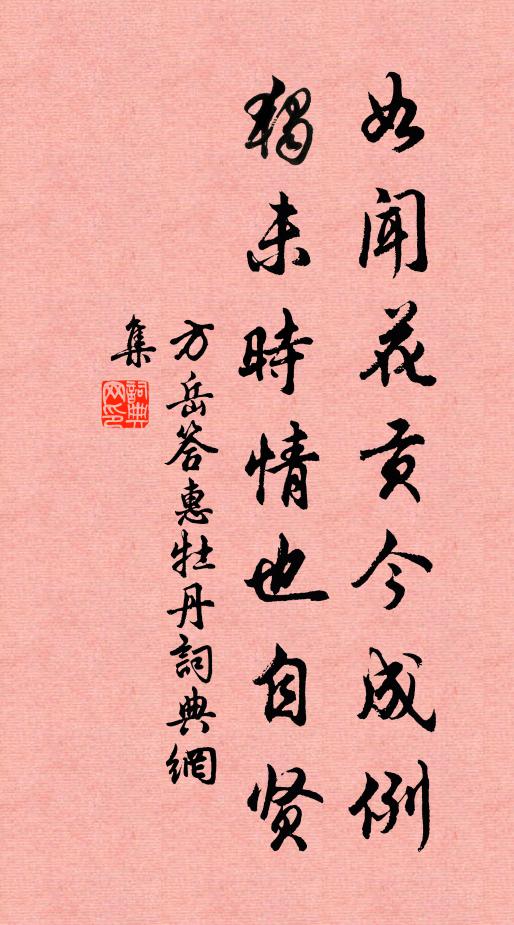 如闻花贡今成例
独未时情也自贤
方岳答惠牡丹詞典網
集
詞典
网印